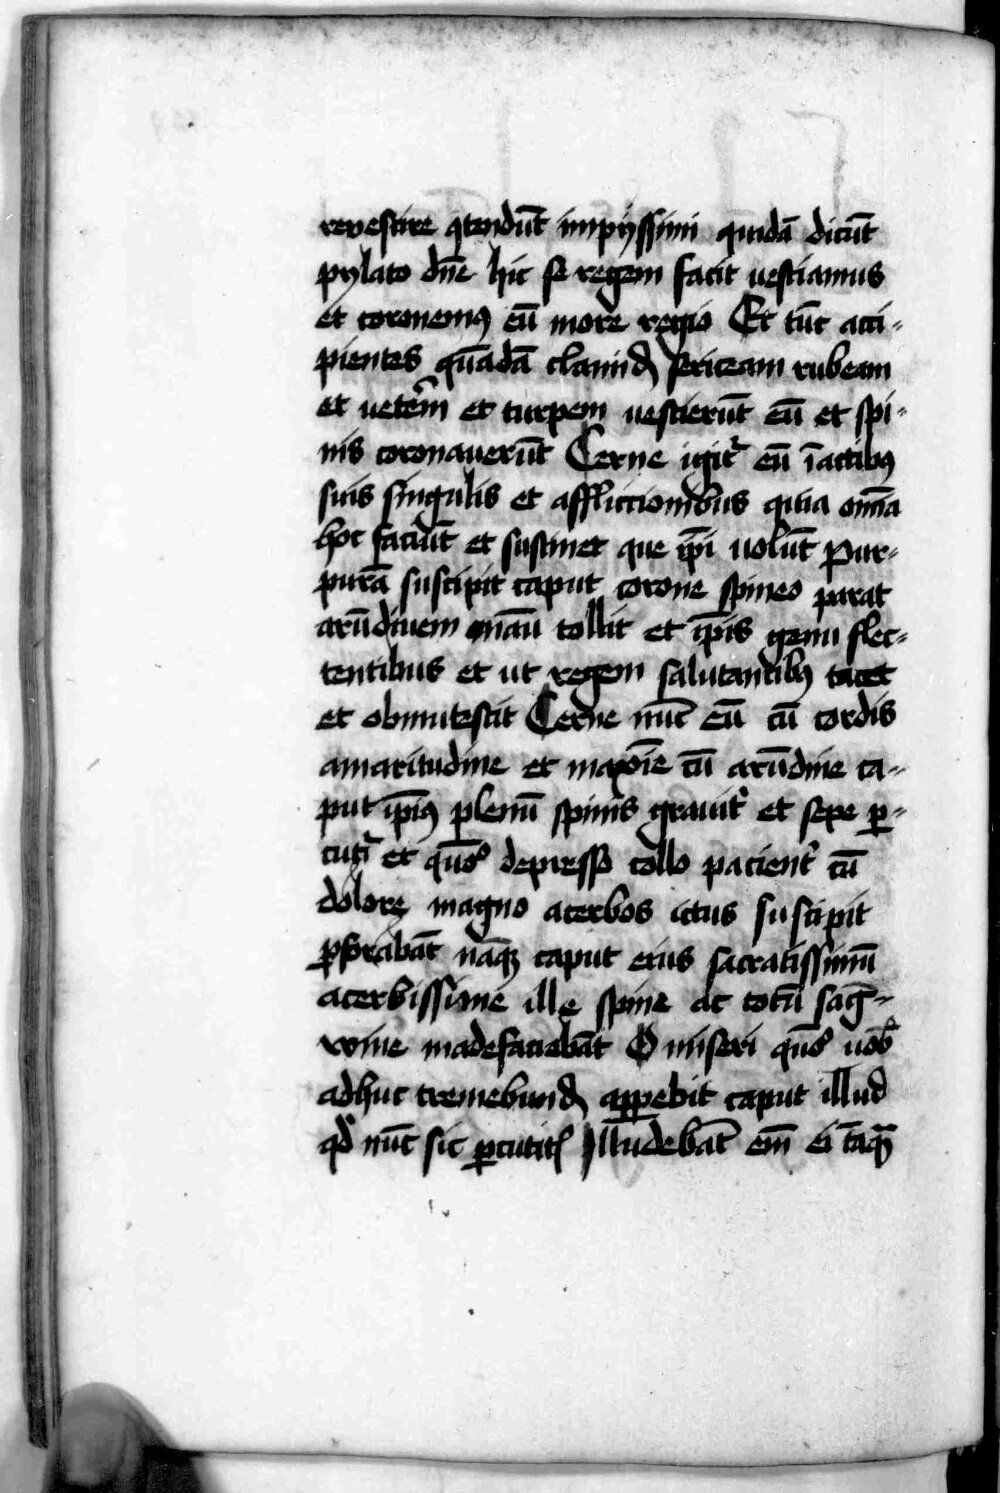 revestire ꝯtendūt impijssimi quidā dicūt
pylato dn̄e hic se regem facit vestiamus
et coronemꝰ eū more regio Et tūc acci-
pientes quādā clamidē sericeam rubeam
et veterē et turpem vestierūt eū et spi-
nis coronaverūt Cerne igit̉ eū ī actibꝰ
suis singulis et afflictionibus quia om̄ia
hoc faciūt et sustinet que ip̄i volūt Pur-
purā suscipit caput corone spineo parat
arūdinem manū tollit et ip̄is genu flec-
tentibus et ut regem salutantibꝰ tacet
et obmutescit Cerne nūc eū cū cordis
amaritudine et maxīe cū arūdine ca-
put ip̄iꝰ plenū spinis gravit̉ et sepe ꝑ-
cuti et quōº depresso collo pacient̉ cū
dolore magno acerbos ictus suscipit
ꝑforabāt nāqꝫ caput eius sacratissimū
acerbissime ille spine ac totū sāg-
wine madefaciebāt O miseri quōº vob̉
adhuc tremebundꝰ apparebit caput illud
qd̉ nūc sic ꝑcutitꝭ Illudebāt em̄ ei tāqᷓ